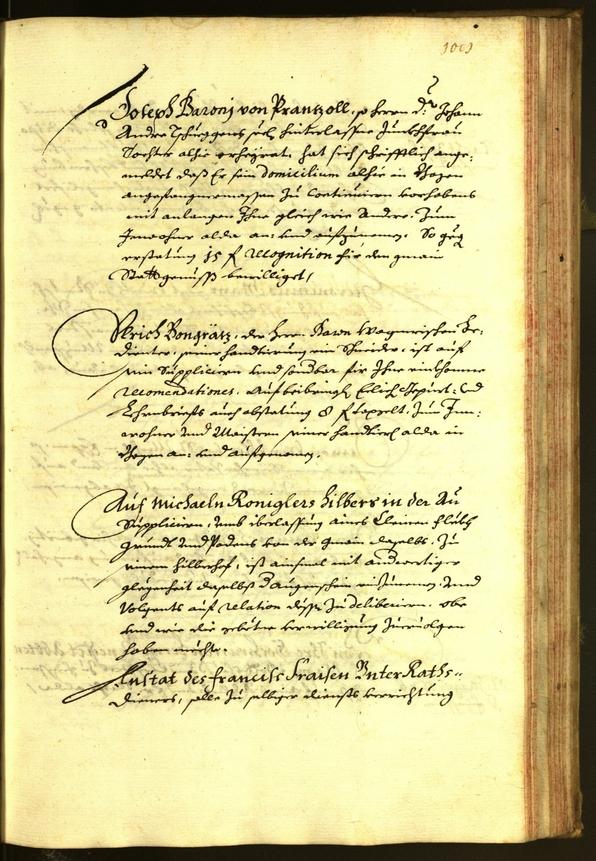 Joseph Baronj von Prantzoll, so herrn Dr: Johann
Andre Tschiggens sel: hinterlassne Junckhfrau
Tochter alhie verheyrat, hat sich schrifftlich ange-
meldet daß Er sein domicilium alhie in Bozen
angefangnermassen zu continuirn vorhabens
mit anlangen Ihne gleich wie Andere, zum
Inwohner alda an: und aufzunemen. So geg
erstatung 15 f recognition für den gmain
Stattgenuss bewilliget /
Ulrich Pongrätz, der herrn Baron Wagnerischen Be-
dienter, seiner handtierung ein Schneider, ist auf
sein Supplicirn und sonderbar für Ihne einkhomne
recomendationes, auf beibringung Eelich Gepurt: und
Lehrnbriefs auch abstatung 8 f taxgelt, zum Inn-
wohner und Maistern seiner handtierung alda in
Bozen an: und aufgenomen.
Auf Michaeln Koniglers hilbers in der Au
Supplicirn, umb überlassung aines Clainen
grundt und Podens von der gmain daselbs, zu
einem hilberhof, ist ainsmal mit andwertiger
glegenheit daselbst Augenschein einzunemen, und
Volgents auf relation dessen zu deliberiern, obe
und wie die gebetne verwilligung zuervolgen
haben mechte.
Anstat des Francisc Fraisen Unter Raths-
dieners, solle zu selbiger diensts verrichtung